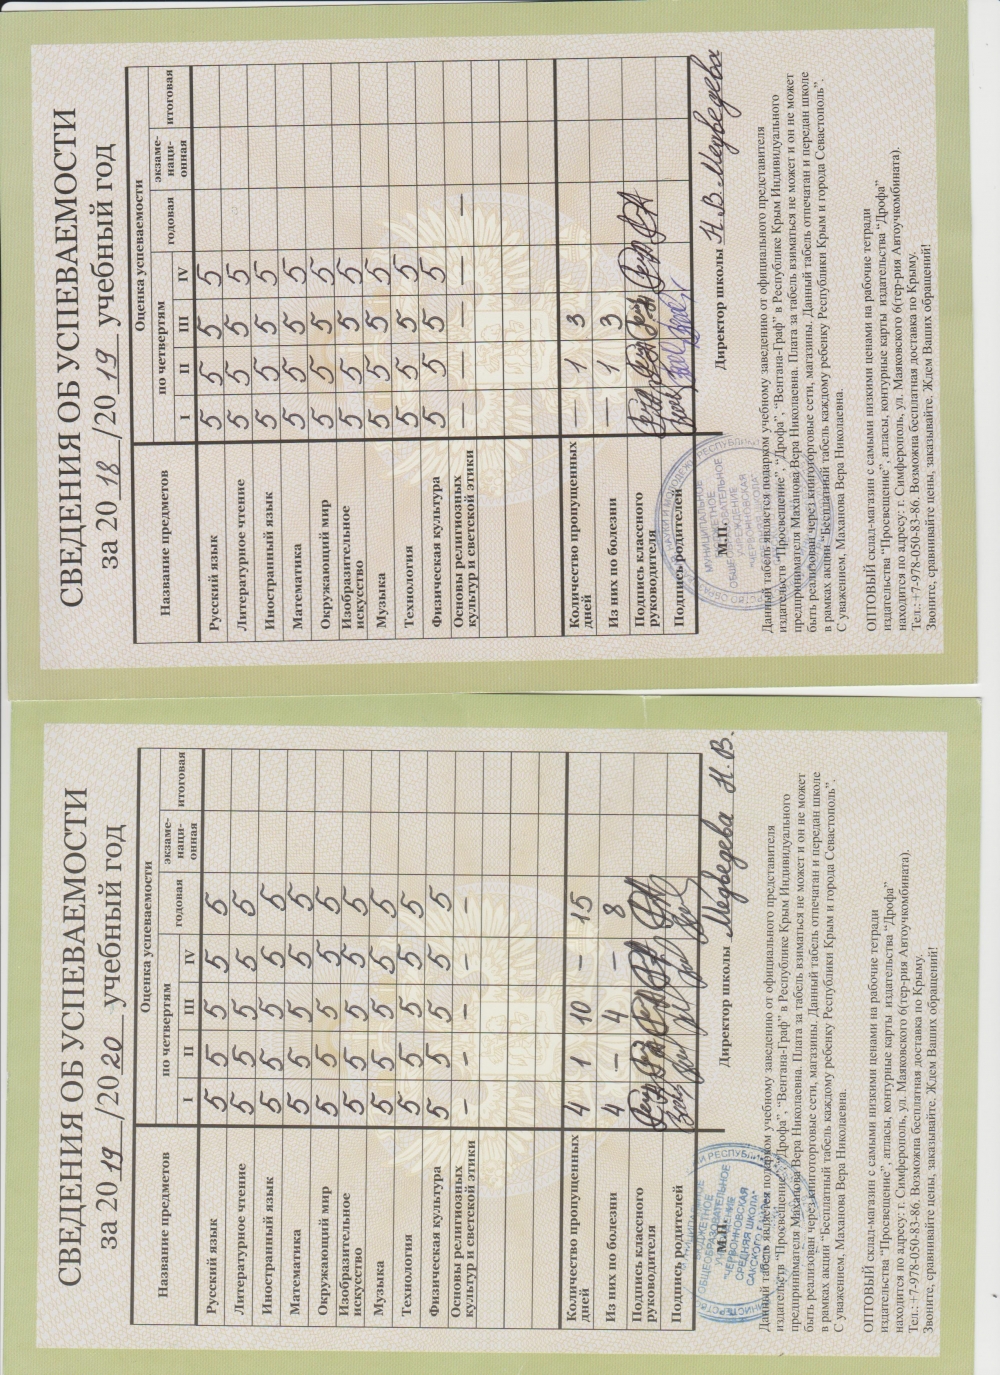 СВЕДЕНИЯ ОБ УСПЕВАЕМОСТИ
за 20 18 /20 19 учебный год
Название предметов
Оценка успеваемости
по четвертям
годовая
экзаме-
наци-
онная
итоговая
I II III IV
Русский язык 5 5 5 5
Литературное чтение 5 5 5 5
Иностранный язык 5 5 5 5
Математика 5 5 5 5
Окружающий мир 5 5 5 5
Изобразительное
искусство 5 5 5 5
Музыка 5 5 5 5
Технология 5 5 5 5
Физическая культура 5 5 5 5
Основы религиозных
культур и светской этики — — — — —
Количество пропущенных
дней — 1 3
Из них по болезни — 1 3
Подпись классного
руководителя
Подпись родителей
М.П.
Директор школы Н. В. Медведева
МУНИЦИПАЛЬНОЕ
БЮДЖЕТНОЕ
ОБЩЕОБРАЗОВАТЕЛЬНОЕ
УЧРЕЖДЕНИЕ
"ЧЕРВОННОВСКАЯ
Данный табель является подарком учебному заведению от официального представителя
издательств "Просвещение", "Дрофа", "Вентана-Граф" в Республике Крым Индивидуального
предпринимателя Маханова Вера Николаевна. Плата за табель взиматься не может и он не может
быть реализован через книготорговые сети, магазины. Данный табель отпечатан и передан школе
в рамках акции "Бесплатный табель каждому ребенку Республики Крым и города Севастополь".
С уважением, Маханова Вера Николаевна.
ОПТОВЫЙ склад-магазин с самыми низкими ценами на рабочие тетради
издательства "Просвещение", атласы, контурные карты издательства "Дрофа"
находится по адресу: г. Симферополь, ул. Маяковского 6(тер-рия Автоучкомбината).
Тел.:+7-978-050-83-86. Возможна бесплатная доставка по Крыму.
Звоните, сравнивайте цены, заказывайте. Ждем Ваших обращений!
СВЕДЕНИЯ ОБ УСПЕВАЕМОСТИ
за 20 19 /20 20 учебный год
Название предметов
Оценка успеваемости
по четвертям
годовая
экзаме-
наци-
онная
итоговая
I II III IV
Русский язык 5 5 5 5 5
Литературное чтение 5 5 5 5 5
Иностранный язык 5 5 5 5 5
Математика 5 5 5 5 5
Окружающий мир 5 5 5 5 5
Изобразительное
искусство 5 5 5 5 5
Музыка 5 5 5 5 5
Технология 5 5 5 5 5
Физическая культура 5 5 5 5 5
Основы религиозных
культур и светской этики – – – – –
Количество пропущенных
дней 4 1 10 – 15
Из них по болезни 4 – 4 – 8
Подпись классного
руководителя
Подпись родителей
М.П.
Директор школы Медведева Н. В.
БЮДЖЕТНОЕ
ОБЩЕОБРАЗОВАТЕЛЬНОЕ
УЧРЕЖДЕНИЕ
"ЧЕРВОННОВСКАЯ
СРЕДНЯЯ ШКОЛА"
САКСКОГО
Данный табель является подарком учебному заведению от официального представителя
издательств "Просвещение", "Дрофа", "Вентана-Граф" в Республике Крым Индивидуального
предпринимателя Маханова Вера Николаевна. Плата за табель взиматься не может и он не может
быть реализован через книготорговые сети, магазины. Данный табель отпечатан и передан школе
в рамках акции "Бесплатный табель каждому ребенку Республики Крым и города Севастополь".
С уважением, Маханова Вера Николаевна.
ОПТОВЫЙ склад-магазин с самыми низкими ценами на рабочие тетради
издательства "Просвещение", атласы, контурные карты издательства "Дрофа"
находится по адресу: г. Симферополь, ул. Маяковского 6(тер-рия Автоучкомбината).
Тел.:+7-978-050-83-86. Возможна бесплатная доставка по Крыму.
Звоните, сравнивайте цены, заказывайте. Ждем Ваших обращений!